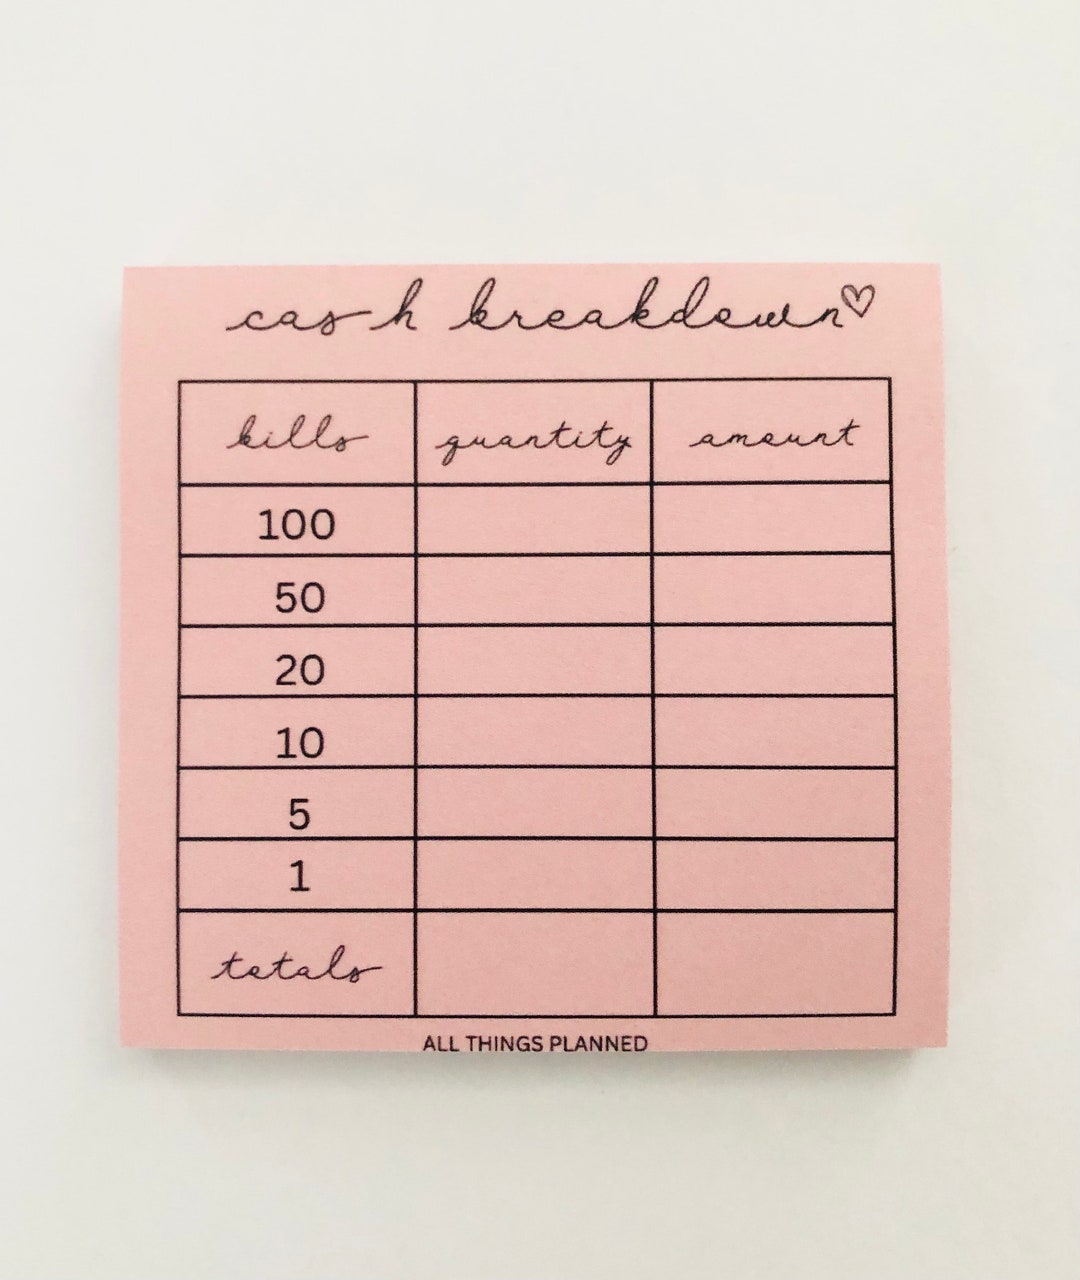 cash breakdown
bills quantity amount
100
50
20
10
5
1
totals
ALL THINGS PLANNED